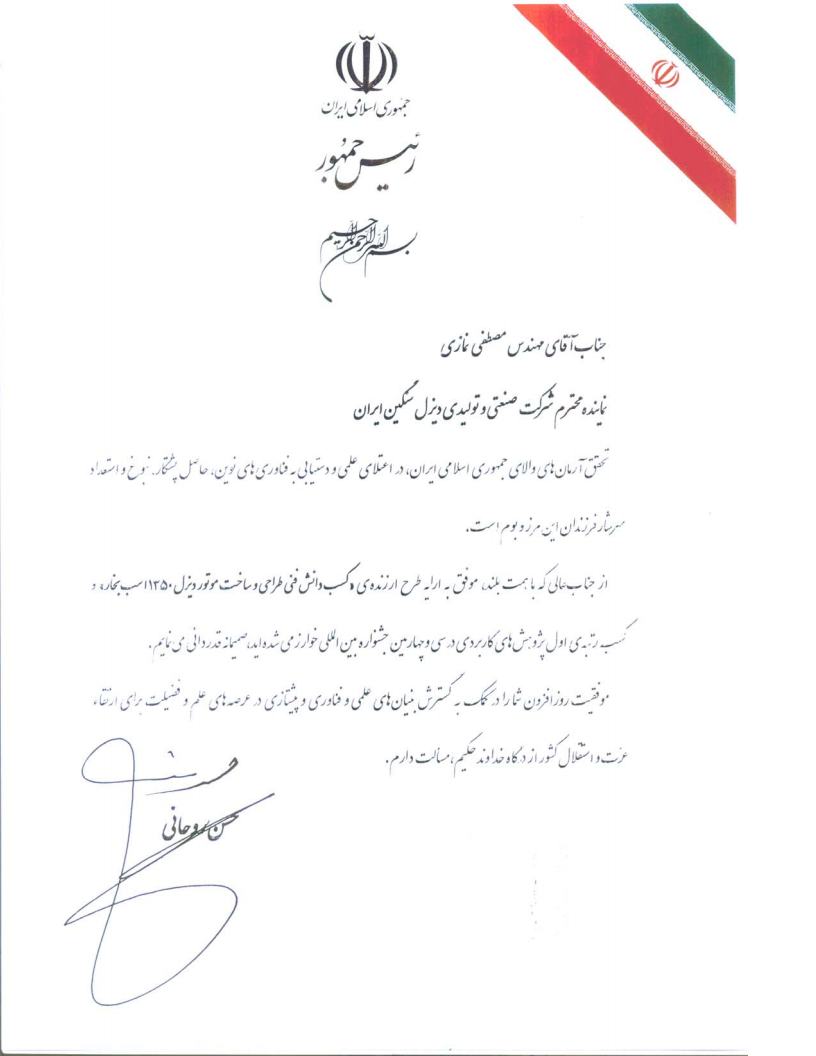 جمهوری اسلامی ایران
رئیس جمهور
بسم الله الرحمن الرحیم
جناب آقای مهندس مصطفی نمازی
نماینده محترم شرکت صنعتی و تولیدی دیزل سنگین ایران
تحقق آرمان های والای جمهوری اسلامی ایران، در اعتلای علمی و دستیابی به فناوری های نوین، حاصل پشتکار، نبوغ و استعداد
سرشار فرزندان این مرز و بوم است.
از جنابعالی که با همت بلند، موفق به ارایه طرح ارزنده ی «کسب دانش فنی طراحی و ساخت موتور دیزل ۱۲۵۰ اسب بخار» و
کسب رتبه ی اول پژوهش های کاربردی در سی و چهارمین جشنواره بین المللی خوارزمی شده اید، صمیمانه قدردانی می نمایم.
موفقیت روزافزون شما را در کمک به گسترش بنیان های علمی و فناوری و پیشتازی در عرصه های علم و فضیلت برای ارتقاء
عزت و استقلال کشور از درگاه خداوند حکیم، مسالت دارم.
حسن روحانی